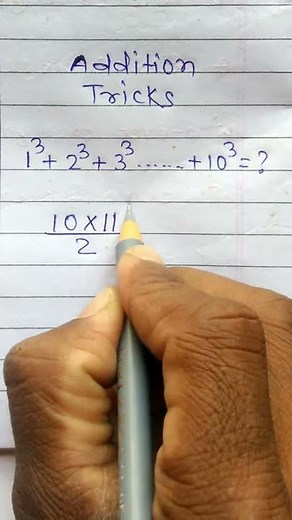 Addition
Tricks
1³+2³+3³......+10³=?
10×11
2